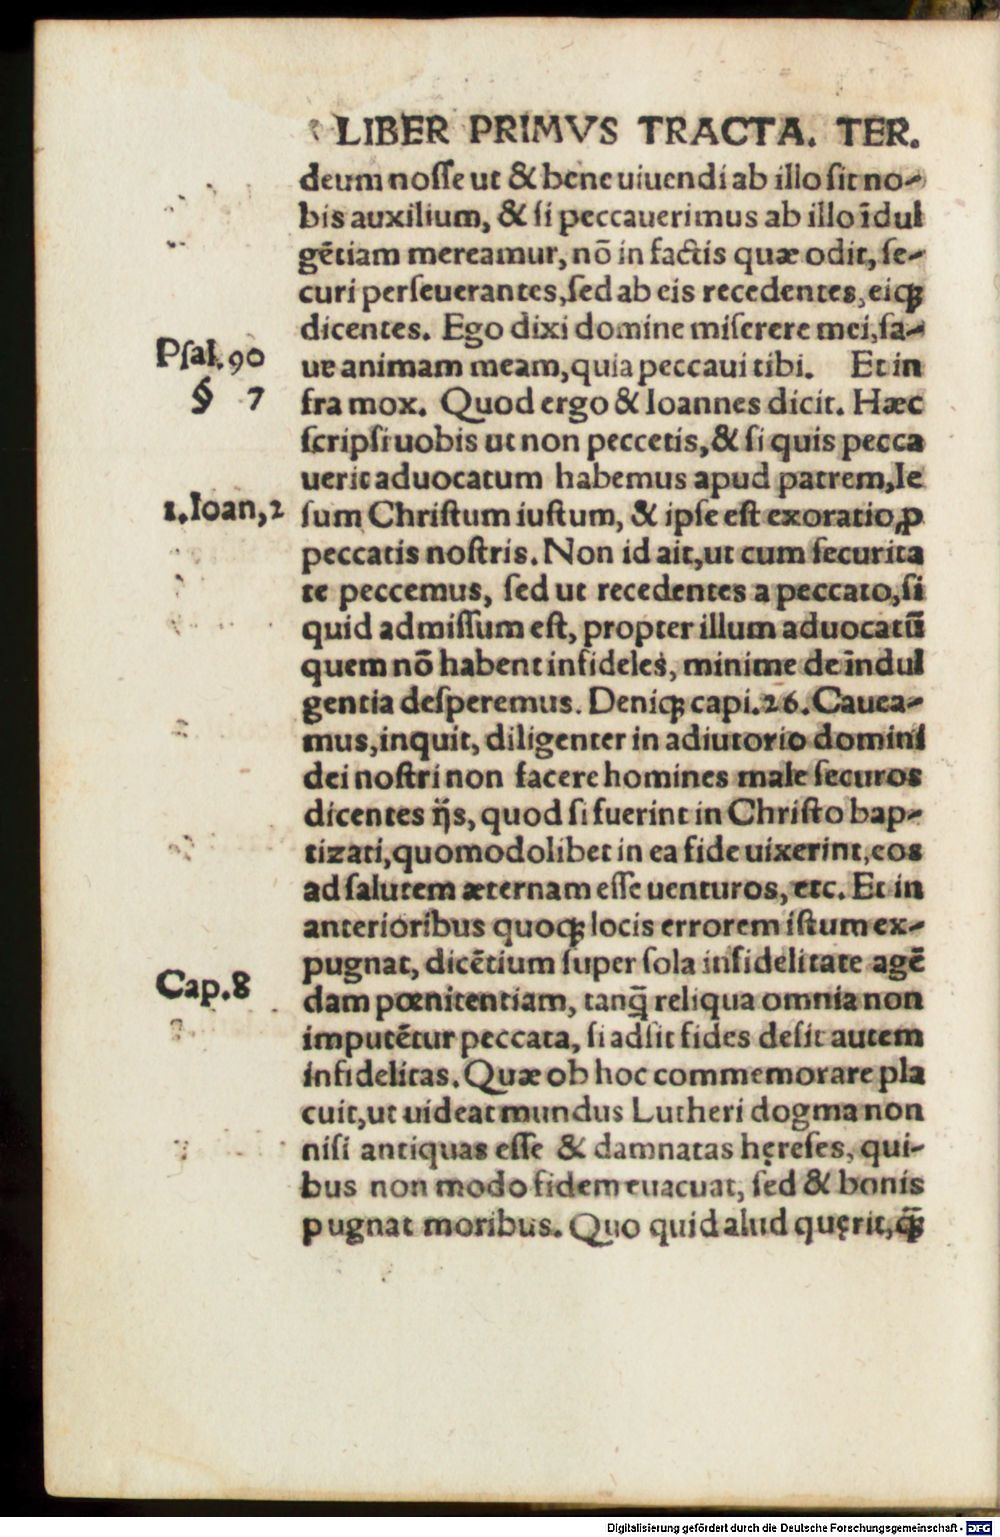 LIBER PRIMVS TRACTA. TER.
deum nosse ut & bene uiuendi ab illo sit no-
bis auxilium, & si peccauerimus ab illo īdul
gētiam mereamur, nō in factis quæ odit, se-
curi perseuerantes, sed ab eis recedentes, eiqꝫ
dicentes. Ego dixi domine miserere mei, sa-
Psal. 90
ue animam meam, quia peccaui tibi. Et in
§ 7
fra mox. Quod ergo & Ioannes dicit. Hæc
scripsi uobis ut non peccetis, & si quis pecca
uerit aduocatum habemus apud patrem, Ie
1. Ioan, 2
sum Christum iustum, & ipse est exoratio ꝓ
peccatis nostris. Non id ait, ut cum securita
te peccemus, sed ut recedentes a peccato, si
quid admissum est, propter illum aduocatū
quem nō habent infideles, minime de īndul
gentia desperemus. Deniqꝫ capi. 26. Cauea-
mus, inquit, diligenter in adiutorio domini
dei nostri non facere homines male securos
dicentes ijs, quod si fuerint in Christo bap-
tizati, quomodolibet in ea fide uixerint, eos
ad salutem æternam esse uenturos, etc. Et in
anterioribus quoqꝫ locis errorem istum ex-
pugnat, dicētium super sola infidelitate agē
Cap. 8
dam pœnitentiam, tanq̄ reliqua omnia non
imputētur peccata, si adsit fides desit autem
infidelitas. Quæ ob hoc commemorare pla
cuit, ut uideat mundus Lutheri dogma non
nisi antiquas esse & damnatas hęreses, qui-
bus non modo fidem euacuat, sed & bonis
pugnat moribus. Quo quid alud quęrit, q̄ꝫ
Digitalisierung gefördert durch die Deutsche Forschungsgemeinschaft - DFG